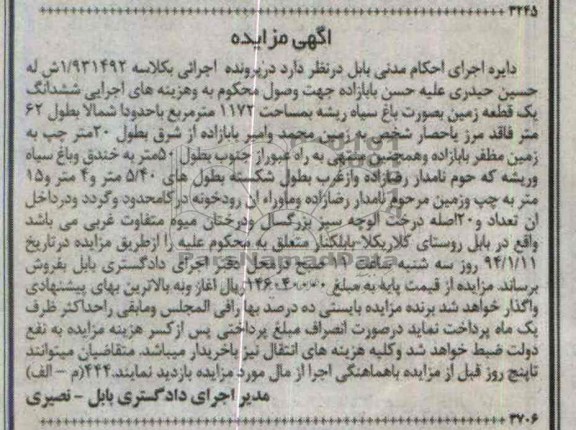 ۳۲۴۵
آگهی مزایده
دایره اجرای احکام مدنی بابل درنظر دارد درپرونده اجرائی بکلاسه ۱/۹۳۱۴۹۲ش له
حسین حیدری علیه حسن بابازاده جهت وصول محکوم به وهزینه های اجرایی ششدانگ
یک قطعه زمین بصورت باغ سیاه ریشه بمساحت ۱۱۷۲ مترمربع باحدودا شمالا بطول ۶۲
متر فاقد مرز یاحصار شخص به زمین محمد وامیر بابازاده از شرق بطول ۲۰متر چپ به
زمین مظفر بابازاده وهمچنین منتهی به راه عبوراز جنوب بطول ۵۰متر به خندق وباغ سیاه
وریشه که حوم نامدار رضازاده وازغرب بطول شکسته بطول های ۵/۴۰ متر و۴ متر و۱۵
متر به چپ وزمین مرحوم نامدار رضازاده وماوراء ان رودخونه درکامحدود وگردد ودرداخل
ان تعداد و۲۰اصله درخت الوچه سبز بزرگسال ودرختان میوه متفاوت غربی می باشد
واقع در بابل روستای کلاریکلا-بابلکنار متعلق به محکوم علیه را ازطریق مزایده درتاریخ
۹۴/۱/۱۱ روز سه شنبه ساعت ۱۱ صبح درمحل دفتر اجرای دادگستری بابل بفروش
برساند. مزایده از قیمت پایه به مبلغ ریال اغاز وبه بالاترین بهای پیشنهادی
واگذار خواهد شد برنده مزایده بایستی ده درصد بها رافی المجلس ومابقی راحداکثر ظرف
یک ماه پرداخت نماید درصورت انصراف مبلغ پرداختی پس ازکسر هزینه مزایده به نفع
دولت ضبط خواهد شد وکلیه هزینه های انتقال نیز باخریدار میباشد. متقاضیان میتوانند
تاپنج روز قبل از مزایده باهماهنگی اجرا از مال مورد مزایده بازدید نمایند.۴۴۴(م - الف)
مدیر اجرای دادگستری بابل - نصیری
۳۷۰۶
ParsNamadData